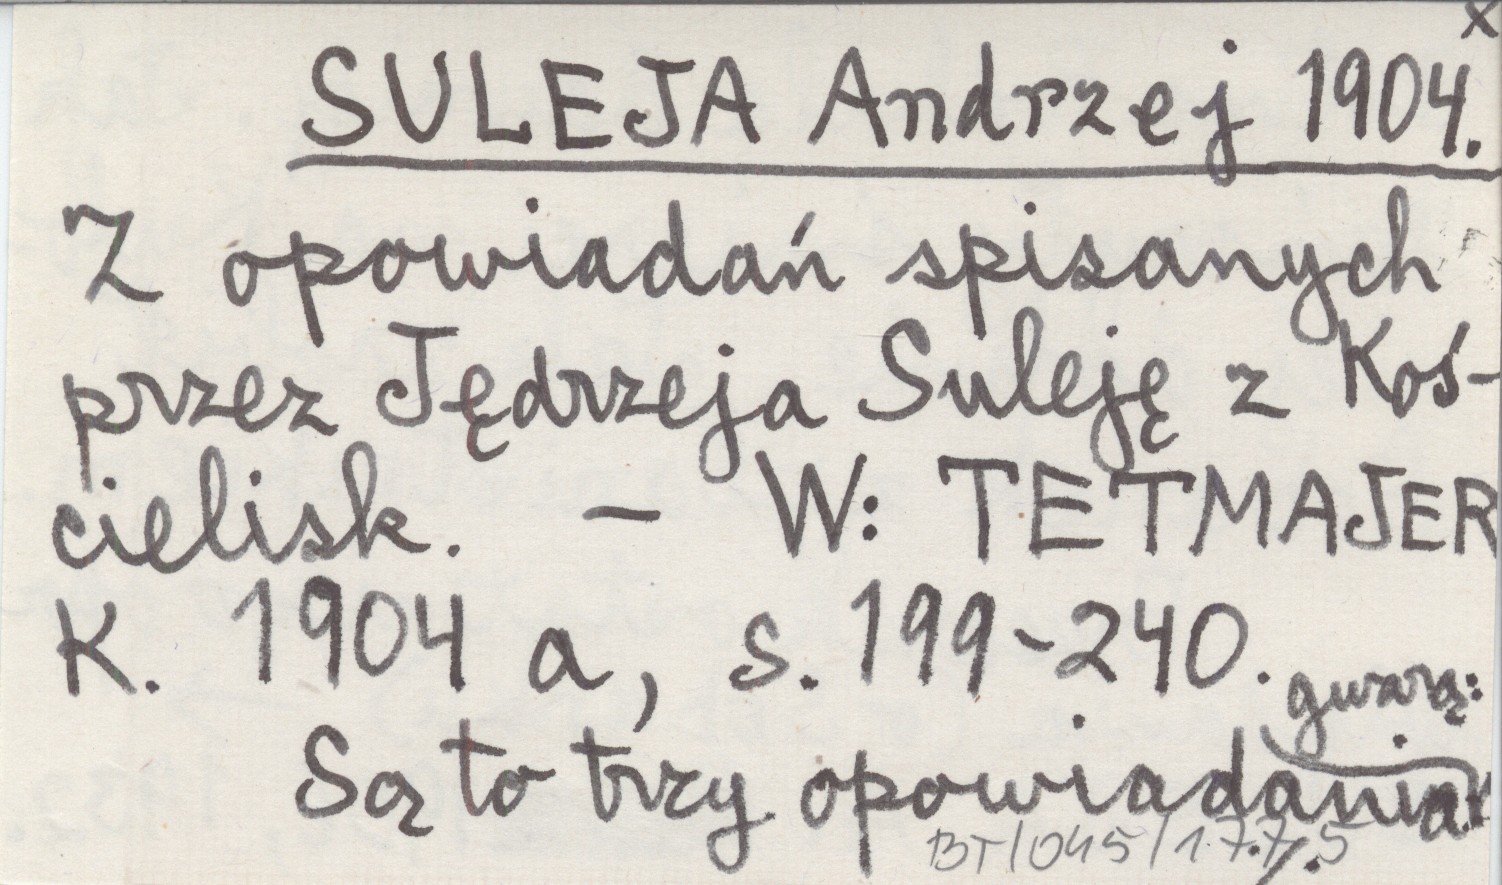 x
SULEJA Andrzej 1904.
Z opowiadań spisanych
przez Jędrzeja Suleję z Koś-
cielisk. – W: TETMAJER
K. 1904 a, s. 199-240.
gwarą:
Są to trzy opowiadania
BT/045/1.7.7.5